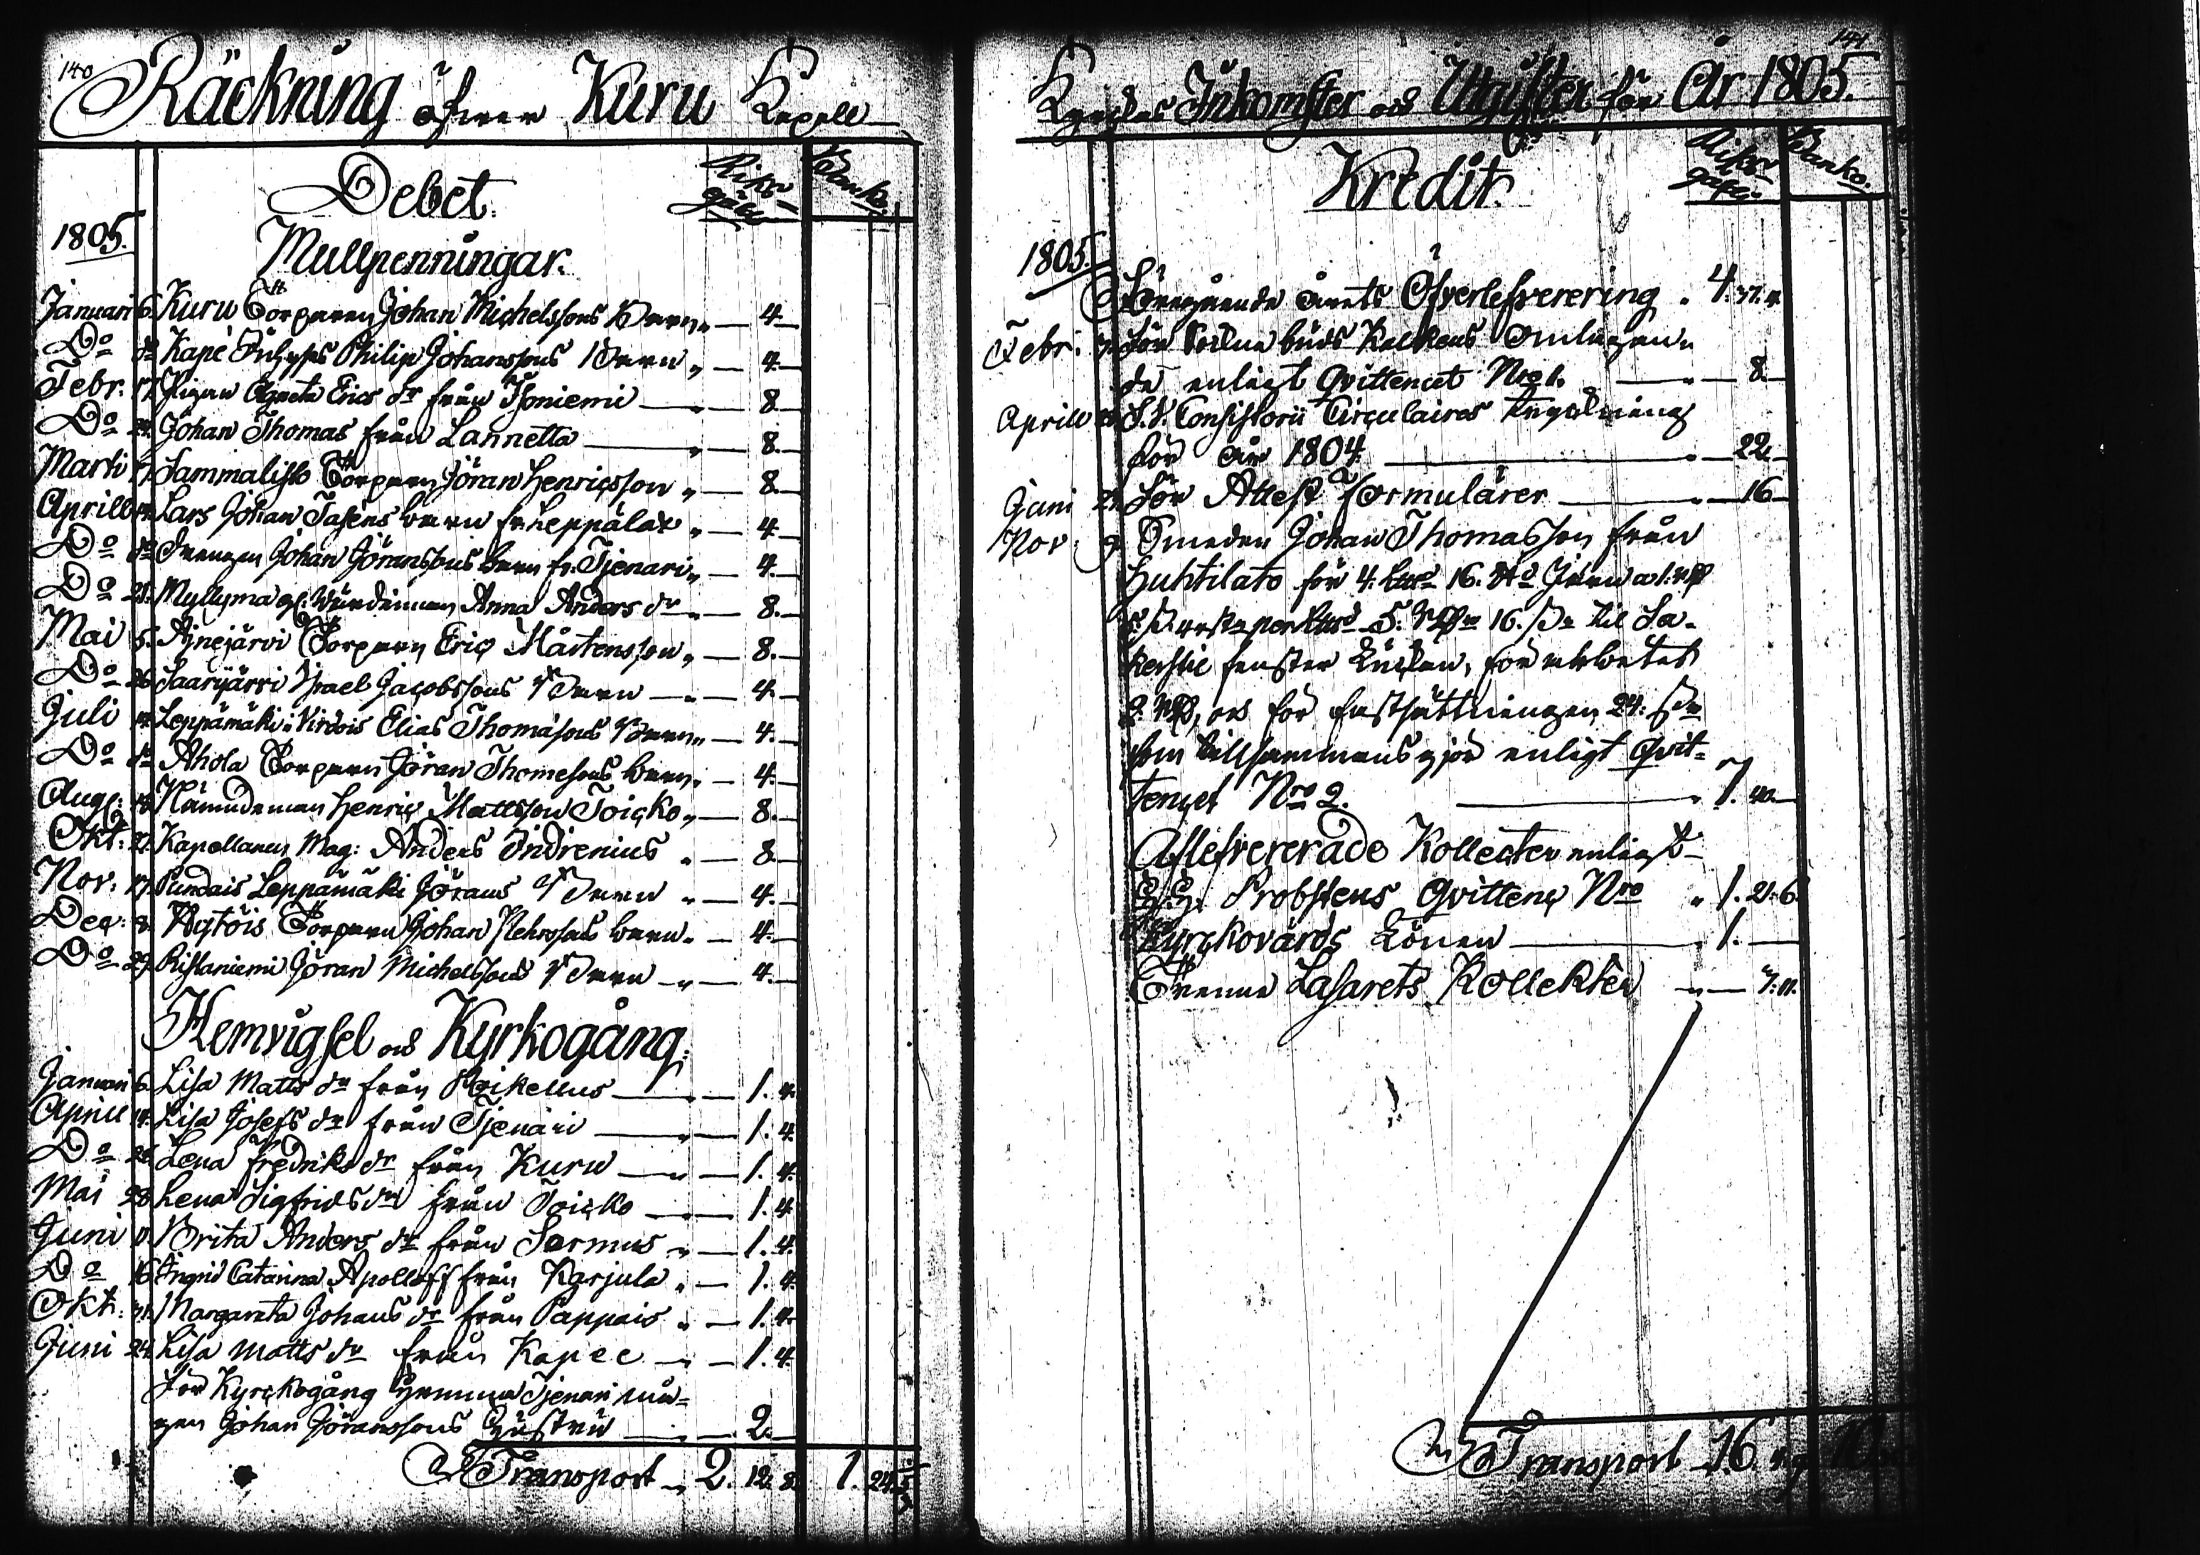 140
Räckning öfwer Kuru Kapell
Debet.
Riksgäld
Banko.
1805.
Mullpenningar.
Januari 6. Kuru Torparen Johan Michelssons Barn " — 4.
Do do Kapé Inhyses Philip Johanssons Barn " — 4.
Febr. 17. Pigan Agneta Erics dr från Isoniemi — " — 8.
Do 24. Johan Thomas från Lannetta — " — 8.
Marti Sammalisto Torparen Jöran Henricsson " — 8.
Aprill Lars Johan Tasens barn fr. Leppälax " — 4.
Do do Drengen Johan Jöranssons barn fr. Tjenari " — 4.
Do 28. Myllyma gl. Värdinnan Anna Anders dr " — 8.
Mai 5. Torparen Eric Mårtensson " — 8.
Do 26. Saarijärvi Israel Jacobssons Barn — " — 4.
Juli 14. Leppämäki Virdois Elias Thomasons Barn " — 4.
Do do Ahola Torparen Jöran Thomesons barn " — 4.
Aug: 18. Nämndeman Henric Mattsson Toicko " — 8.
Okt: 27. Kapellanen Mag: Anders Indrenius " — 8.
Nov: 17. Pundais Leppämäki Jörans Barn " — 4.
Dec: 8. Torparen Johan barn " — 4.
Do 29. Ristaniemi Jöran Michelssons Barn " — 4.
Hemvigsel och Kyrkogång.
Januari 6. Lisa Matts dr från Poikellus — " — 1. 4.
Aprill 14. Lisa Josefs dr från Tjenari — " — 1. 4.
Do 28. Lena Fredriks dr från Kuru — " — 1. 4.
Mai 28. Lena Sigfrids dr från Toicko — " — 1. 4.
Juni Brita Anders dr från Sormus " — 1. 4.
Do 16. Ingrid Catarina Apolloff från Karjula " — 1. 4.
Okt: Margareta Johans dr från Pappais " — 1. 4.
Juni 24. Lisa Matts dr från Kapee " — 1. 4.
För Kyrckogång hemma Tjenari
gen Johan Jöranssons Hustru — " — 2.
Transport " 2. 12. 8. 1. 24.
141
Kyrckas Inkomster och Utgifter för År 1805.
Kredit.
Riksgäld.
Banko.
1805.
Föregående årets Öfverlefverering " 4. 37. 4.
Febr: För Sockne buds Kalkens omlagan-
de enligt Qvittencet Nro 1. — " — 8.
Aprill S. V. Consistorii Circulaires
för år 1804. — " — 22.
Juni 24. För Attest Formulärer — " — 16
Nov: 9. Smeden Johan Thomasson från
Huhtilato för 4. 16. Järn
5. 16. til Sa-
kerstie fenster Luckan, för arbetet
2. och för fastsättningen 24.
som tillsammans gjör enligt Qvit-
tencet Nro 2. — " 7. 40.
Aflefvererade Kollecter enligt
Probstens Qvittenc Nro " 1. 21. 6.
Kyrckovärds Lönen — " 1. —
Tvenne Lasarets Kollekter " — 7. 11.
Transport 16.